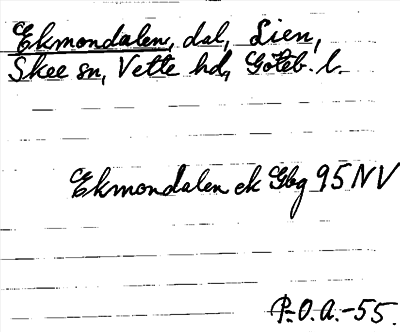 Ekmondalen, dal, Lien,
Skee sn, Vette hd, Göteb. l.
Ekmondalen ek Gbg 95 NV
P.O.A.-55.